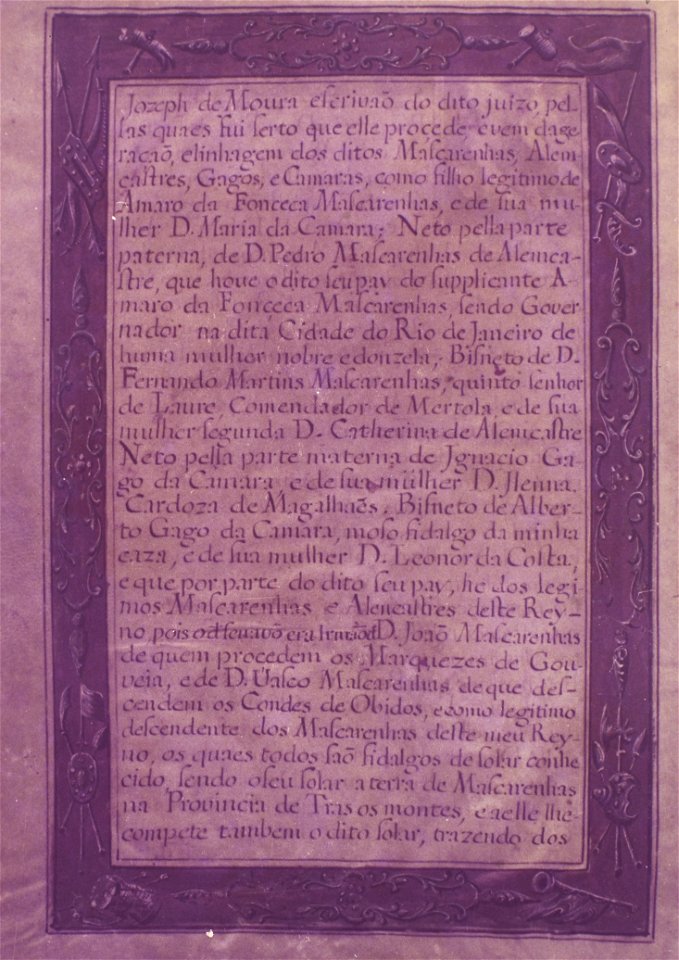 Jozeph de Moura escrivaõ do dito juizo, pel
las quaes fui serto que elle procede, e vem da ge
racaõ, e linhagem dos ditos Mascarenhas, Alem
castres, Gagos, e Camaras, como filho legitimo de
Amaro da Fonceca Mascarenhas, e de sua mu
lher D. Maria da Camara; Neto pella parte
paterna, de D. Pedro Mascarenhas de Alemca
stre, que houe o dito seu pay do supplicante A
maro da Fonceca Mascarenhas, sendo Gover
nador na dita Cidade do Rio de Janeiro de
huma mulher nobre e donzela; Bisneto de D.
Fernando Martins Mascarenhas, quinto senhor
de Laure, Comendador de Mertola e de sua
mulher segunda D. Catherina de Alemcastre
Neto pella parte materna de Jgnacio Ga
go da Camara, e de sua mulher D. Jlenna
Cardoza de Magalhaẽs, Bisneto de Alber
to Gago da Camara, moso fidalgo da minha
caza, e de sua mulher D. Leonor da Costa,
e que por parte do dito seu pay, he dos legi
mos Mascarenhas e Alencastres deste Rey-
no, pois o dº seu avô era Irmaõ de D. Joaõ Mascarenhas
de quem procedem os Marquezes de Gou
veia, e de D. Uasco Mascarenhas de que des-
cendem os Condes de Obidos, e como legitimo
descendente dos Mascarenhas deste meu Rey-
no, os quaes todos saõ fidalgos de solar conhe
cido, sendo o seu solar a terra de Mascarenhas
na Provincia de Tras os montes, e a elle lhe
compete tambem o dito solar, trazendo dos